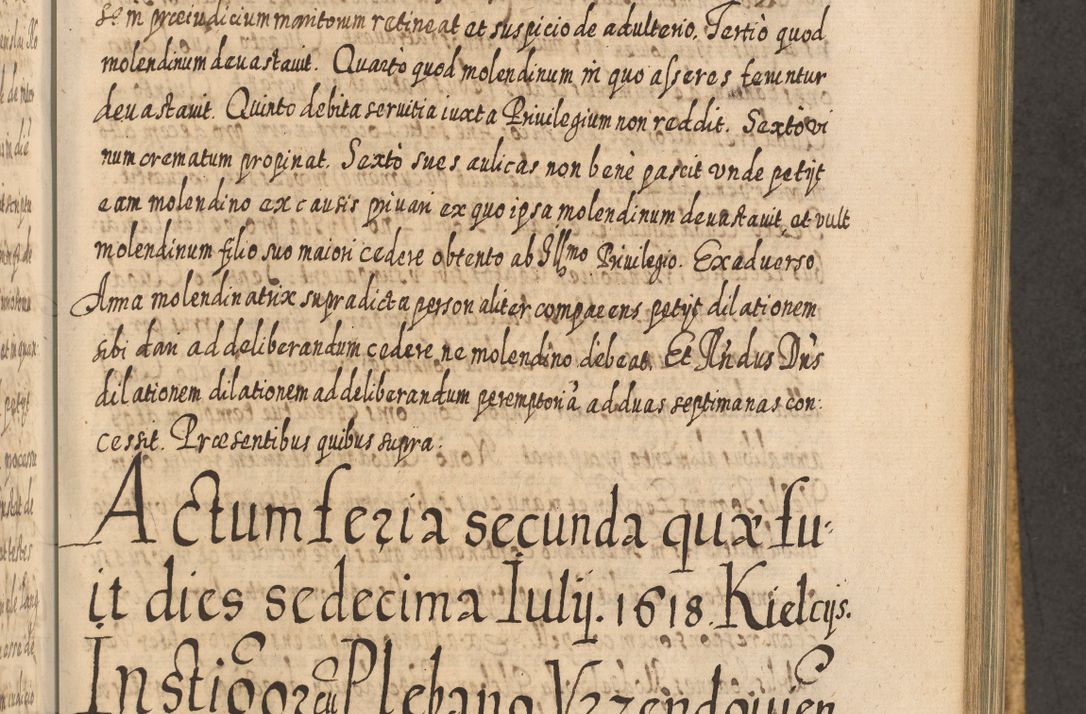 se in præiudicium maritorum retineat et suspicio de adulterio. Tertiò quod
molendinum deuastauit. Quartò quod molendinum in quo asseres feruntur
deuastauit. Quinto debita seruitia iuxta Priuilegium non reddit. Sextò vi
num crematum propinat. Sextò sues aulicas non benè pascit vnde petÿt
eam molendino ex causis priuari ex quo ipsa molendinum deuastauit, et vult
molendinum filio suo maiori cedere obtento ab Illmo Priuilegio. Ex aduerso
Anna molendinatrix supradicta personaliter comparens petÿt dilationem
sibi dari ad deliberandum cedere ne molendino debeat. Et Rndus Dns
dilationem dilationem ad deliberandum peremptoriã ad duas septimanas con:
cessit. Præsentibus quibus supra.
Actum feria secunda quæ fu-
it dies sedecima Iulÿ. 1618. Kielcÿs.
Instig Plebano